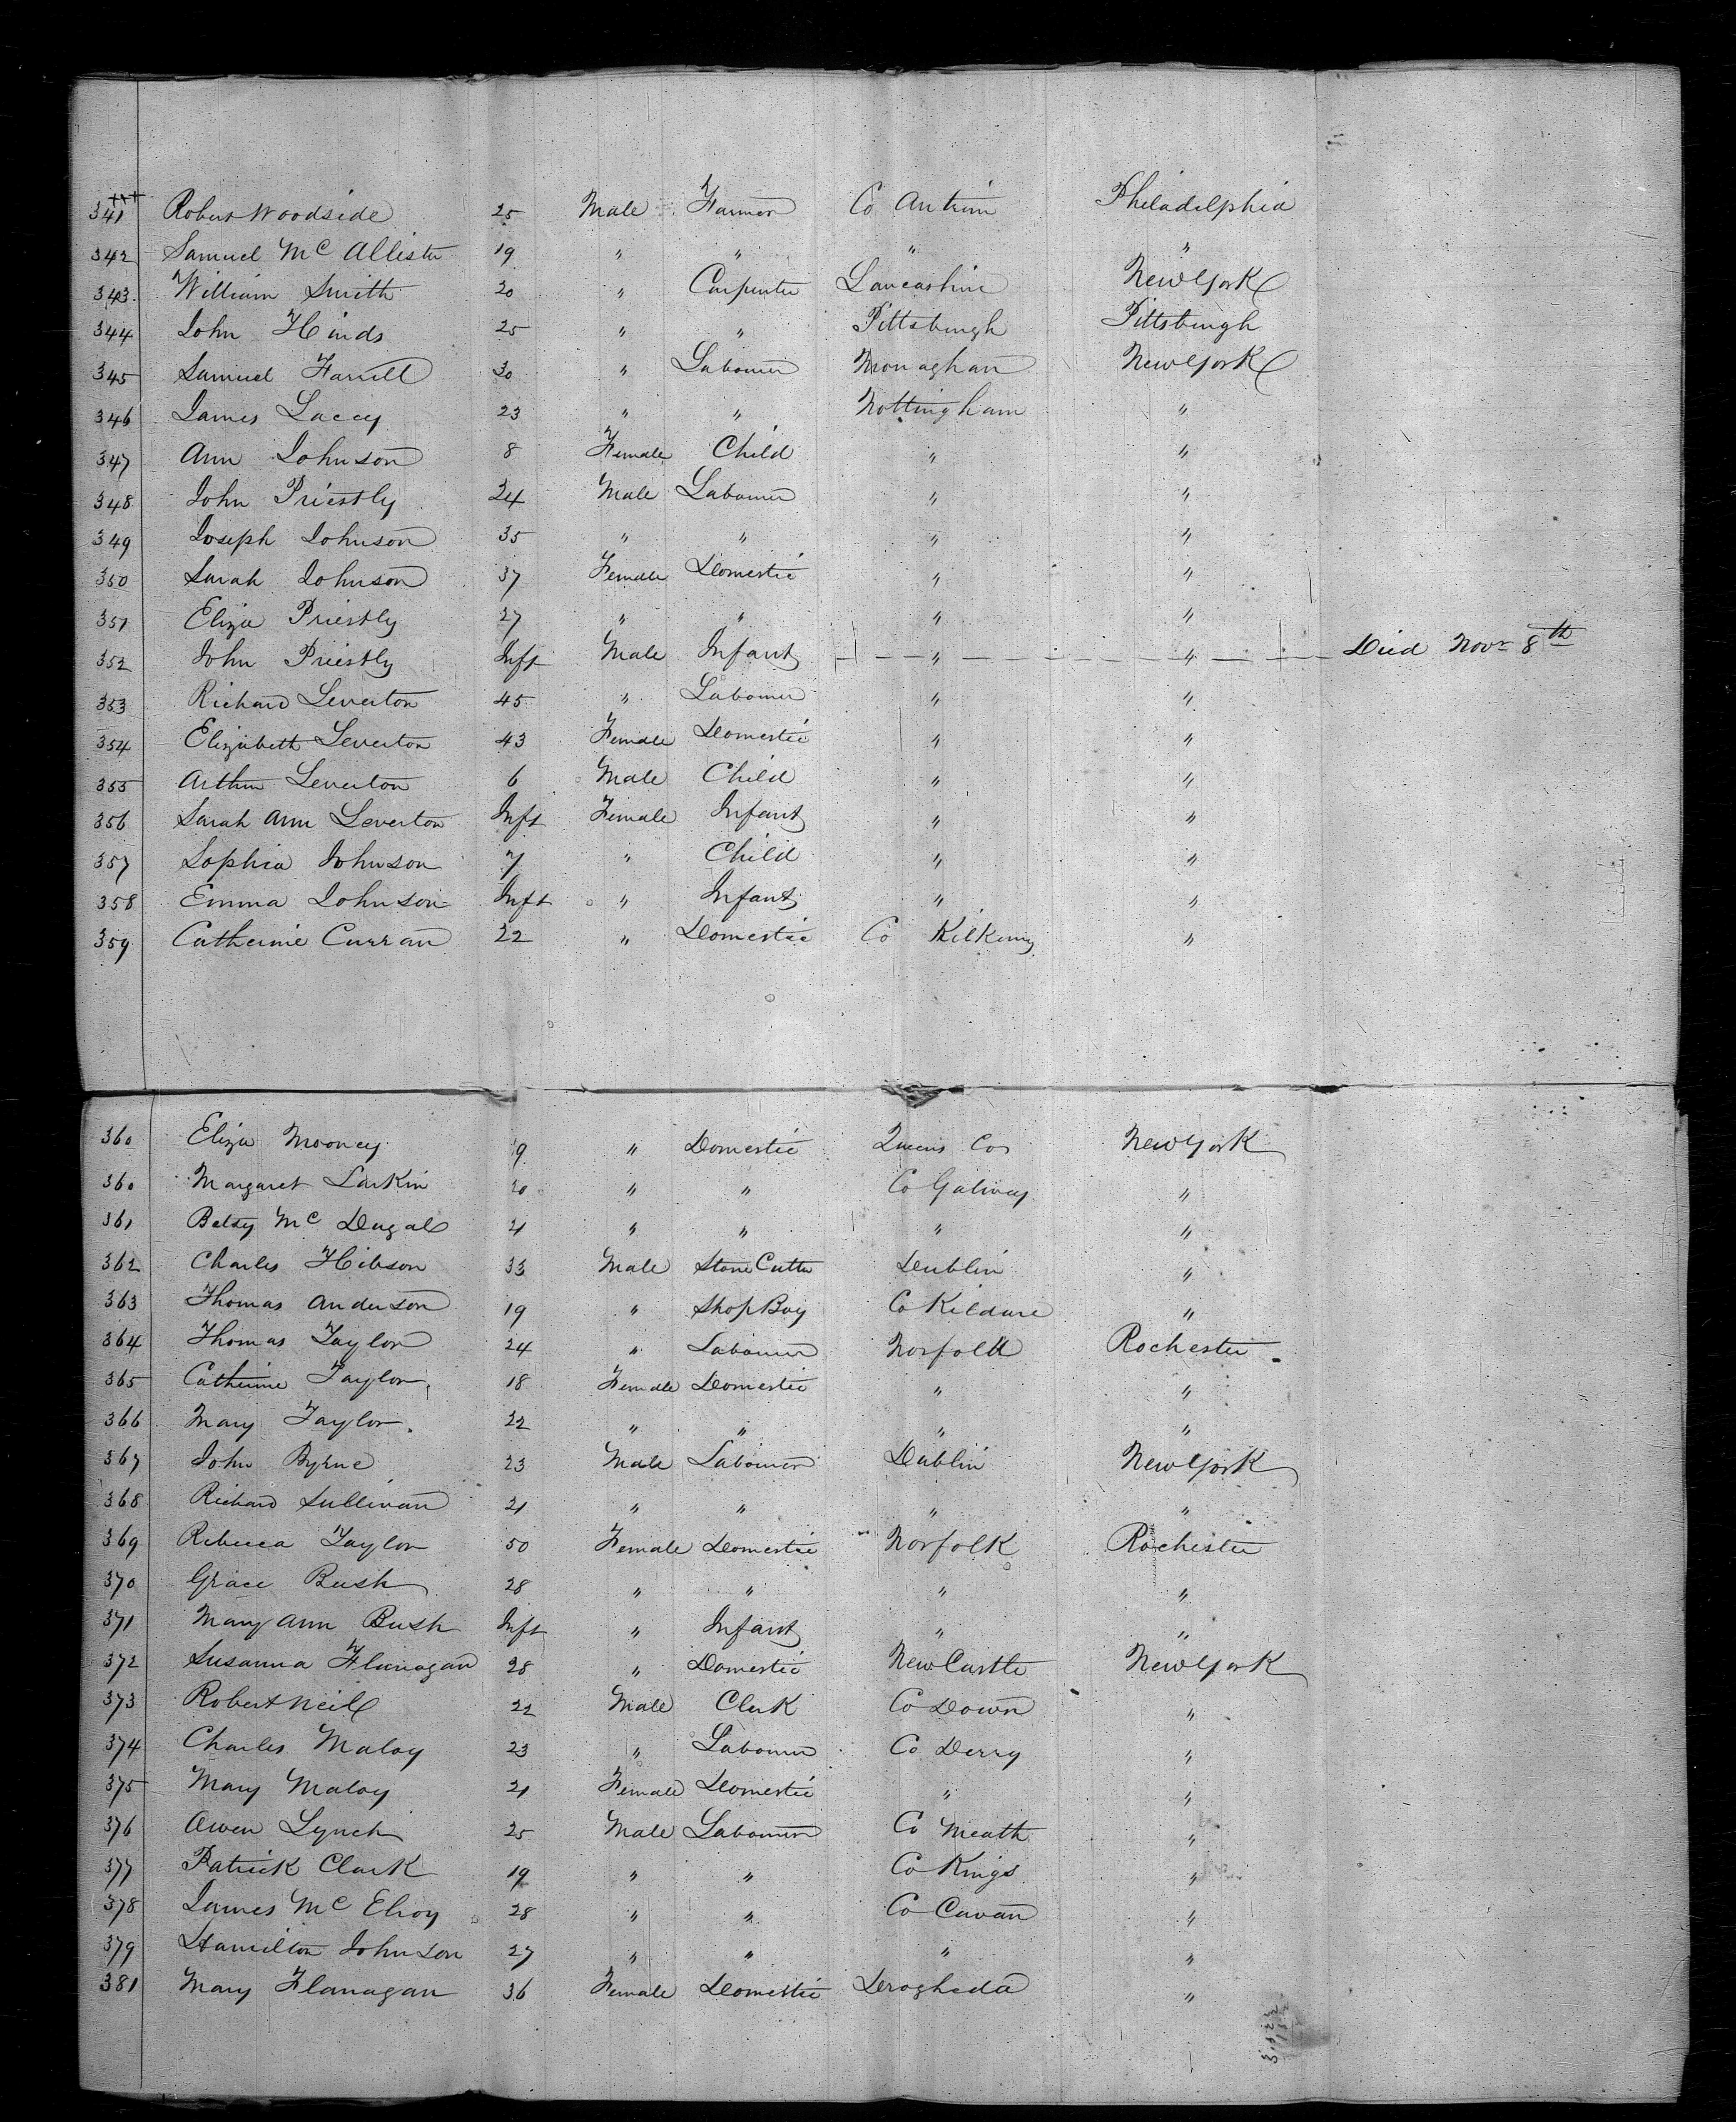 341 Robert Woodside 25 Male Farmer Co Antrim Philadelphia
342 Samuel Mc Allister 19 " " " "
343 William Smith 30 " Carpenter Lancashire New York
344 John Hinds 25 " " Pittsburgh Pittsburgh
345 Samuel Farrell 30 " Labourer Monaghan New York
346 James Lacey 23 " " Nottingham "
347 Ann Johnson 8 Female Child " "
348 John Priestly 24 Male Labourer " "
349 Joseph Johnson 35 " " " "
350 Sarah Johnson 37 Female Domestic " "
351 Eliza Priestly 27 " " " "
352 John Priestly Inft Male Infant " " Died Novr 8th
353 Richard Leverton 45 " Labourer " "
354 Elizabeth Leverton 43 Female Domestic " "
355 Arthur Leverton 6 Male Child " "
356 Sarah Ann Leverton Inft Female Infant " "
357 Sophia Johnson 7 " Child " "
358 Emma Johnson Inft " Infant " "
359 Catherine Curran 22 " Domestic Co Kilkenny "
360 Eliza Mooney 19 " Domestic Queens Co New York
360 Margaret Larkin 20 " " Co Galway "
361 Betsy Mc Dugal 21 " " " "
362 Charles Hibson 33 Male Stone Cutter Dublin "
363 Thomas Anderson 19 " Shop Boy Co Kildare "
364 Thomas Taylor 24 " Labourer Norfolk Rochester
365 Catherine Taylor 18 Female Domestic " "
366 Mary Taylor 22 " " " "
367 John Byrne 23 Male Labourer Dublin New York
368 Richard Sullivan 21 " " " "
369 Rebecca Taylor 50 Female Domestic Norfolk Rochester
370 Grace Bush 28 " " " "
371 Mary Ann Bush Inft " Infant " "
372 Susanna Flanagan 28 " Domestic New Castle New York
373 Robert Neil 22 Male Clerk Co Down "
374 Charles Maloy 23 " Labourer Co Derry "
375 Mary Maloy 21 Female Domestic " "
376 Owen Lynch 25 Male Labourer Co Meath "
377 Patrick Clark 19 " " Co Kings "
378 James Mc Elroy 28 " " Co Cavan "
379 Hamilton Johnson 27 " " " "
381 Mary Flanagan 36 Female Domestic Drogheda "